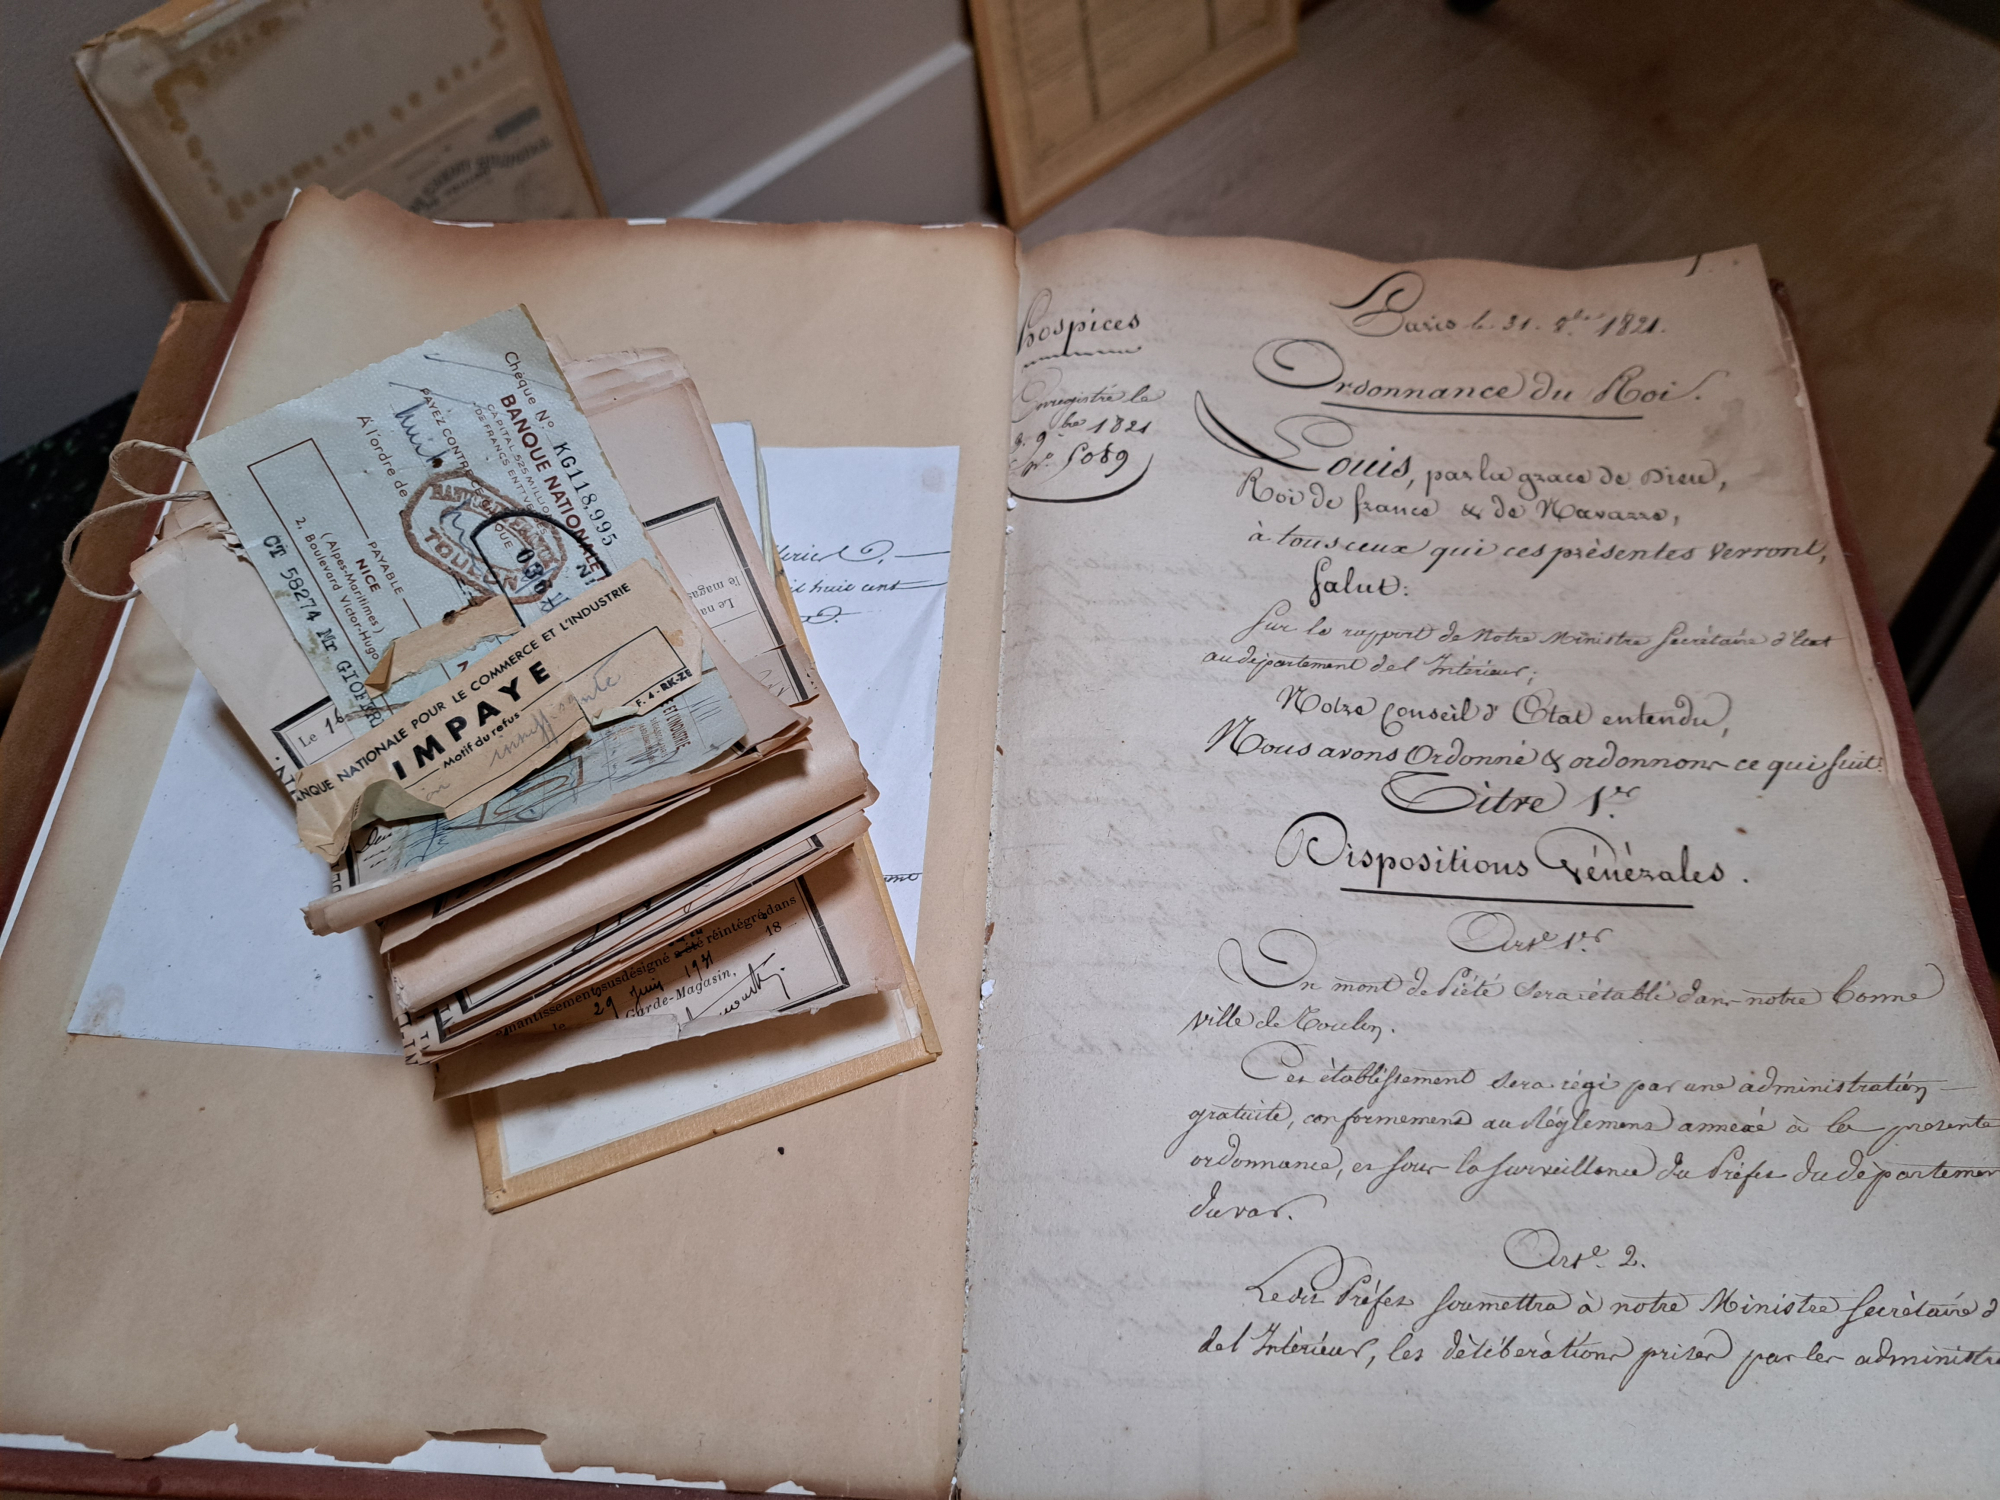 Chèque No KG118,995
BANQUE NATIONALE
CAPITAL 525 MILLIONS
DE FRANCS ENTT VERSÉS
PAYEZ CONTRE CE CHÈQUE
À l'ordre de
TOULON
036
PAYABLE
NICE
(Alpes-Maritimes)
2, Boulevard Victor-Hugo
CT 58274 Mr GIOFFR
BANQUE NATIONALE POUR LE COMMERCE ET L'INDUSTRIE
IMPAYE
Motif du refus
insuffisante
F. 4 - RK-ZE
Le 16
Le na
le magas
huit cent
nantissement susdésigné a été réintégré dans
le 29 Juin 1931 18
Garde-Magasin,
hospices
Enregistré le
9bre 1821
No 5089
1.
Paris le 31. 8bre 1821.
Ordonnance du Roi.
Louis, par la grace de Dieu,
Roi de france & de Navarre,
à tous ceux qui ces présentes verront,
Salut:
Sur le rapport de notre Ministre Secrétaire d'Etat
au département de l'Intérieur;
Notre Conseil d'Etat entendu,
Nous avons Ordonné & ordonnons ce qui suit:
Titre 1er
Dispositions Générales.
Arte 1er
Un mont de Piété sera établi dans notre bonne
ville de Toulon.
Cet établissement sera régi par une administration
gratuite, conformement au Réglement annexé à la presente
ordonnance, et sous la surveillance du Préfet du départemen
du var.
Arte. 2.
Ledit Préfet soumettra à notre Ministre Secrétaire d
de l'Intérieur, les délibérations prises par les administra